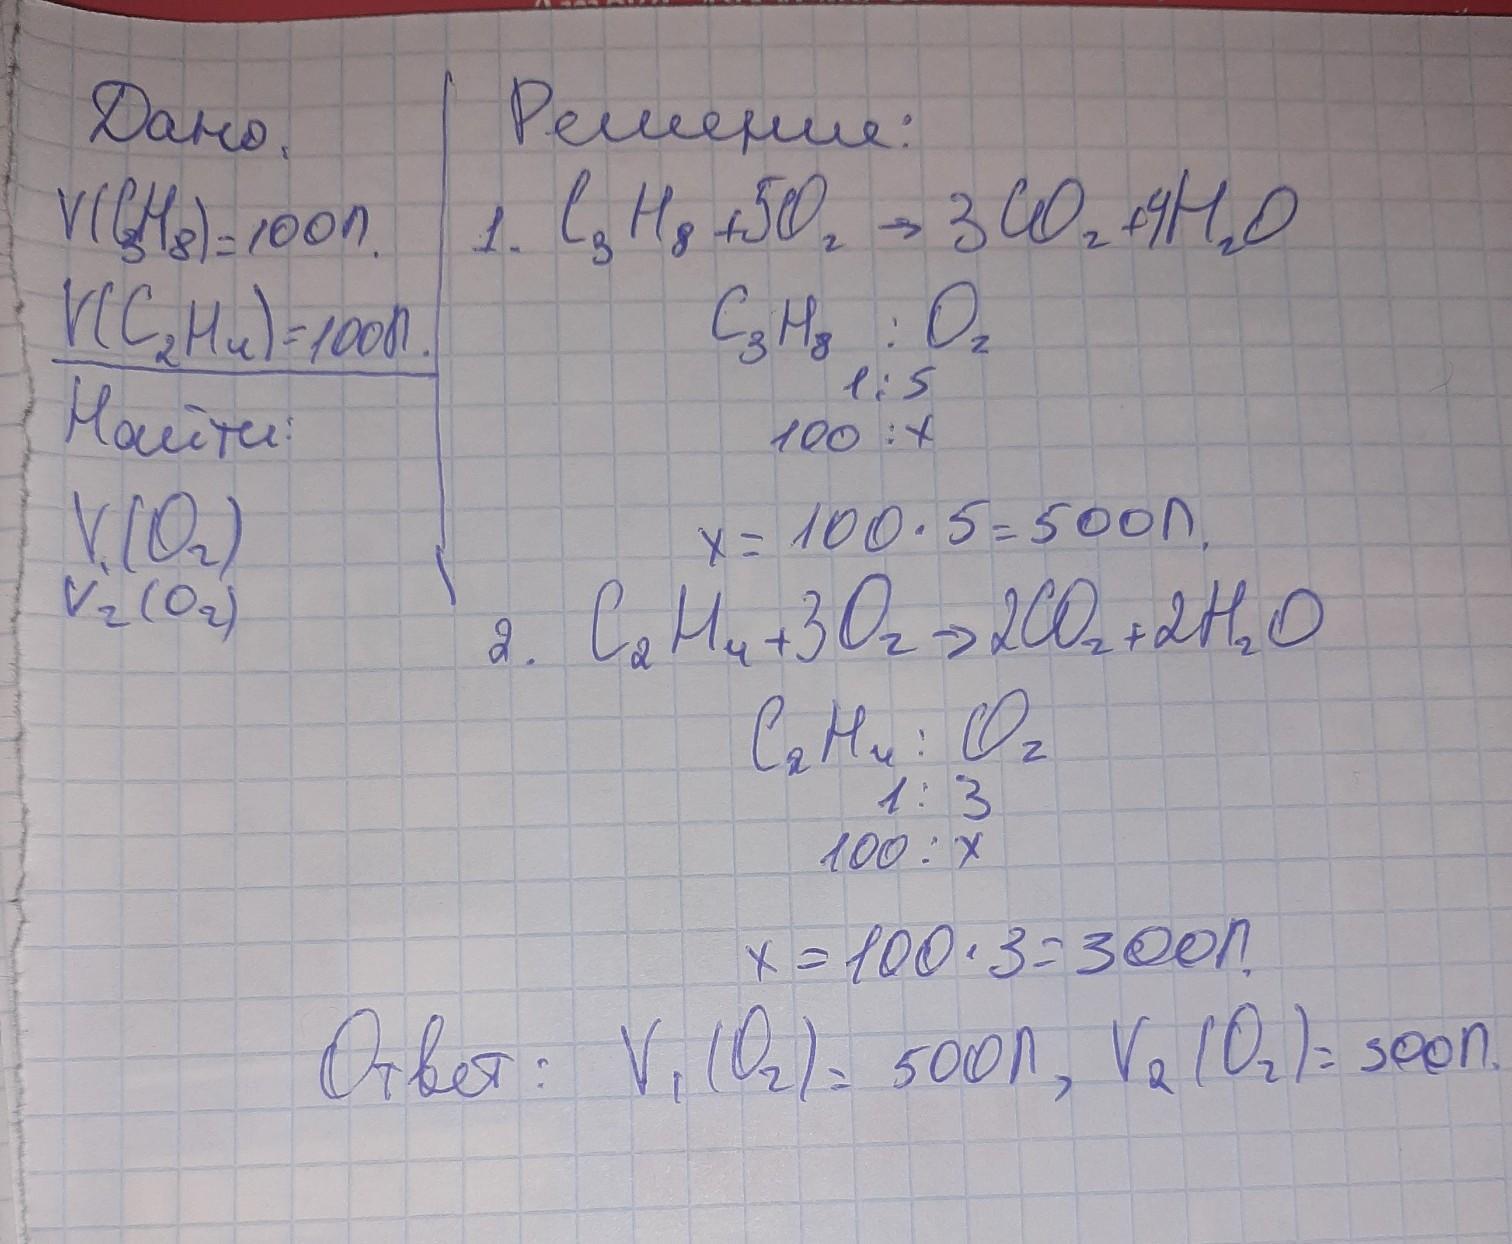 Дано.
V(C₃H₈)=100л.
V(C₂H₄)=100л.
Найти:
V₁(O₂)
V₂(O₂)
Решение:
1. C₃H₈+5O₂→3CO₂+4H₂O
C₃H₈ : O₂
1:5
100:x
x=100·5=500л.
2. C₂H₄+3O₂→2CO₂+2H₂O
C₂H₄: O₂
1:3
100:x
x=100·3=300л.
Ответ: V₁(O₂)=500л, V₂(O₂)=300л.